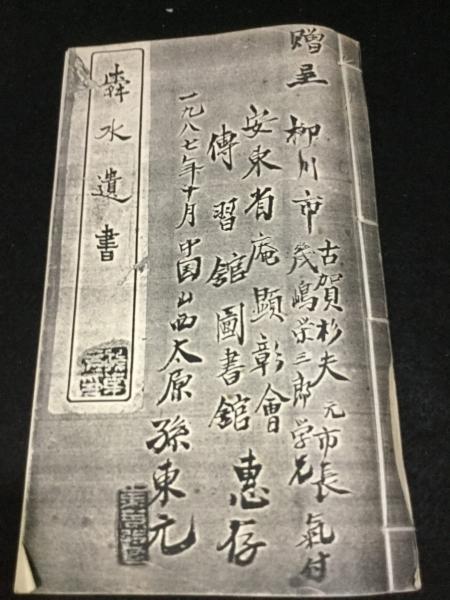 贈呈
柳川市
古賀杉夫 元市長 氣付
幾嶋栄三郎 学兄
安東省庵顯彰會
傳習舘圖書舘 惠存
一九八七年十月中国山西太原 孫東元
犇水遺書